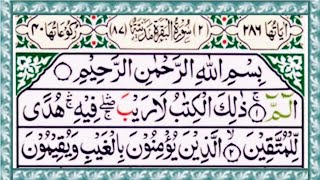 اٰيَاتُهَا ٢٨٦ (٢) سُوْرَةُ الْبَقَرَةِ مَدَنِيَّةٌ (٨٧) رُكُوْعَاتُهَا ٤٠
بِسْمِ اللّٰهِ الرَّحْمٰنِ الرَّحِيْمِ
الٓمّٓ ۚ ١ ذٰلِكَ الْكِتٰبُ لَا رَيْبَ ۛ فِيْهِ ۛ هُدًى
لِّلْمُتَّقِيْنَ ٢ الَّذِيْنَ يُؤْمِنُوْنَ بِالْغَيْبِ وَيُقِيْمُوْنَ